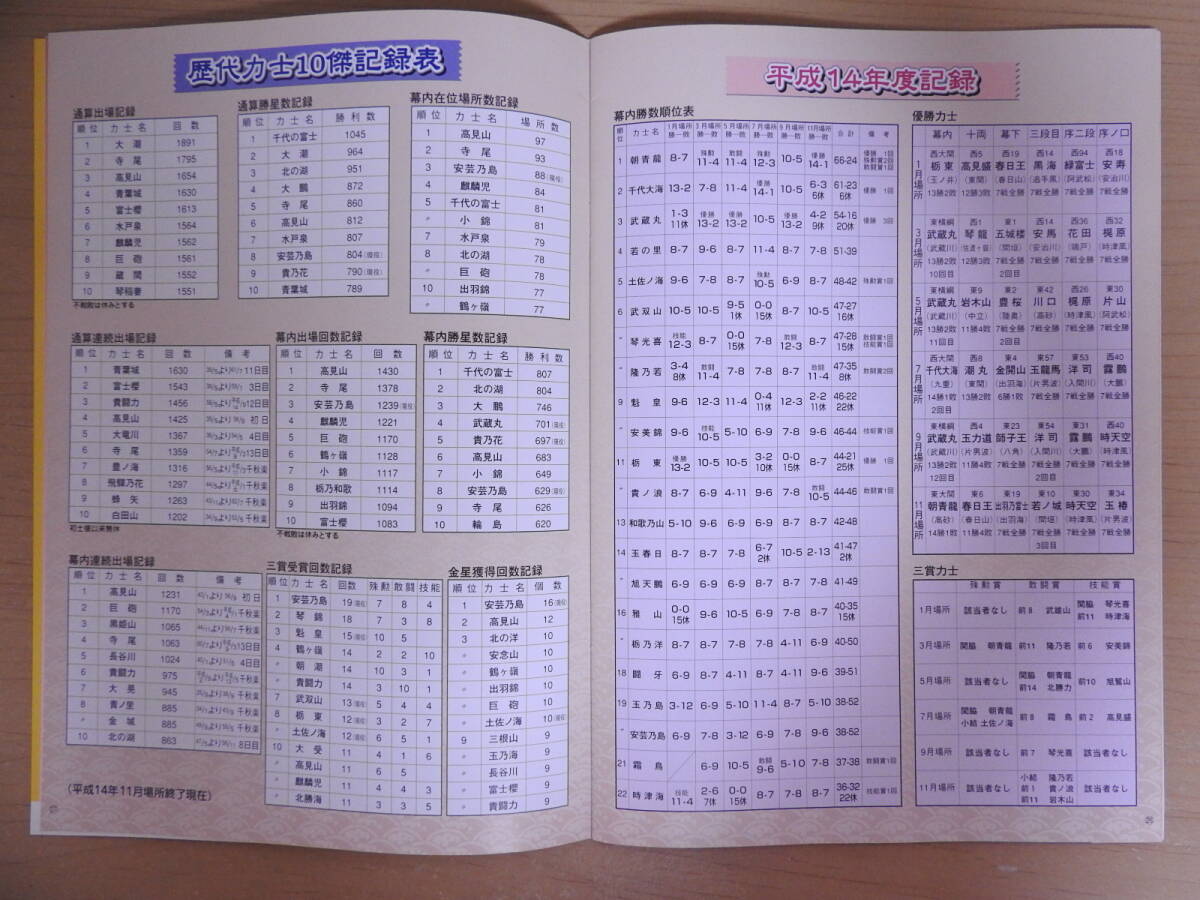 歴代力士10傑記録表
通算出場記録
順位 力士名 回数
1 大潮 1891
2 寺尾 1795
3 高見山 1654
4 青葉城 1630
5 富士櫻 1613
6 水戸泉 1564
7 麒麟児 1562
8 巨砲 1561
9 蔵間 1552
10 琴稲妻 1551
不戦敗は休みとする
通算勝星数記録
順位 力士名 勝利数
1 千代の富士 1045
2 大潮 964
3 北の湖 951
4 大鵬 872
5 寺尾 860
6 高見山 812
7 水戸泉 807
8 安芸乃島 804(現役)
9 貴乃花 790(現役)
10 青葉城 789
幕内在位場所数記録
順位 力士名 場所数
1 高見山 97
2 寺尾 93
3 安芸乃島 88(現役)
4 麒麟児 84
5 千代の富士 81
〃 小錦 81
7 水戸泉 79
8 北の湖 78
〃 巨砲 78
10 出羽錦 77
〃 鶴ヶ嶺 77
通算連続出場記録
順位 力士名 回数 備考
1 青葉城 1630 11日目
2 富士櫻 1543 3日目
3 貴闘力 1456 12日目
4 高見山 1425 初日
5 大竜川 1367 4日目
6 寺尾 1359 13日目
7 豊ノ海 1316 千秋楽
8 飛騨乃花 1297 千秋楽
9 蜂矢 1263 千秋楽
10 白田山 1202 千秋楽
幕内出場回数記録
順位 力士名 回数
1 高見山 1430
2 寺尾 1378
3 安芸乃島 1239(現役)
4 麒麟児 1221
5 巨砲 1170
6 鶴ヶ嶺 1128
7 小錦 1117
8 栃乃和歌 1114
9 出羽錦 1094
10 富士櫻 1083
不戦敗は休みとする
幕内勝星数記録
順位 力士名 勝利数
1 千代の富士 807
2 北の湖 804
3 大鵬 746
4 武蔵丸 701(現役)
5 貴乃花 697(現役)
6 高見山 683
7 小錦 649
8 安芸乃島 629(現役)
9 寺尾 626
10 輪島 620
幕内連続出場記録
順位 力士名 回数 備考
1 高見山 1231 初日
2 巨砲 1170 千秋楽
3 黒姫山 1065 千秋楽
4 寺尾 1063 13日目
5 長谷川 1024 4日目
6 貴闘力 975 千秋楽
7 大晃 945 千秋楽
8 青ノ里 885 千秋楽
〃 金城 885 千秋楽
10 北の湖 863 8日目
(平成14年11月場所終了現在)
三賞受賞回数記録
順位 力士名 回数 殊勲 敢闘 技能
1 安芸乃島 19(現役) 7 8 4
2 琴錦 18 7 3 8
3 魁皇 15(現役) 10 5
4 鶴ヶ嶺 14 2 2 10
〃 朝潮 14 10 3 1
〃 貴闘力 14 3 10 1
7 武双山 13(現役) 5 4 4
8 栃東 12(現役) 3 2 7
〃 土佐ノ海 12(現役) 6 5 1
10 大受 11 4 1 6
〃 高見山 11 6 5
〃 麒麟児 11 4 4 3
〃 北勝海 11 3 3 5
金星獲得回数記録
順位 力士名 個数
1 安芸乃島 16(現役)
2 高見山 12
3 北の洋 10
〃 安念山 10
〃 鶴ヶ嶺 10
〃 出羽錦 10
〃 巨砲 10
〃 土佐ノ海 10(現役)
9 三根山 9
〃 玉乃海 9
〃 長谷川 9
〃 富士櫻 9
〃 貴闘力 9
平成14年度記録
幕内勝数順位表
順位 力士名 1月場所勝―敗 3月場所勝―敗 5月場所勝―敗 7月場所勝―敗 9月場所勝―敗 11月場所勝―敗 合計 備考
1 朝青龍 8-7 殊勲11-4 敢闘11-4 殊勲12-3 10-5 優勝14-1 66-24 優勝1回 殊勲賞2回 敢闘賞1回
2 千代大海 13-2 7-8 11-4 優勝14-1 10-5 6-3 6休 61-23 6休 優勝1回
3 武蔵丸 1-3 11休 優勝13-2 優勝13-2 10-5 優勝13-2 4-2 9休 54-16 20休 優勝3回
4 若の里 8-7 9-6 8-7 11-4 8-7 7-8 51-39
5 土佐ノ海 9-6 7-8 8-7 殊勲10-5 6-9 8-7 48-42 殊勲賞1回
6 武双山 10-5 10-5 9-5 1休 0-0 15休 8-7 10-5 47-27 16休
〃 琴光喜 技能12-3 8-7 0-0 15休 7-8 敢闘12-3 8-7 47-28 15休 敢闘賞1回 技能賞1回
〃 隆乃若 3-4 8休 敢闘11-4 7-8 7-8 8-7 敢闘11-4 47-35 8休 敢闘賞2回
9 魁皇 9-6 12-3 11-4 0-4 11休 12-3 2-2 11休 46-22 22休
〃 安美錦 9-6 技能10-5 5-10 6-9 7-8 9-6 46-44 技能賞1回
11 栃東 優勝13-2 10-5 10-5 3-2 10休 0-0 15休 8-7 44-21 25休 優勝1回
〃 貴ノ浪 8-7 6-9 4-11 9-6 7-8 敢闘10-5 44-46 敢闘賞1回
13 和歌乃山 5-10 9-6 6-9 6-9 8-7 8-7 42-48
14 玉春日 8-7 8-7 7-8 6-7 2休 10-5 2-13 41-47 2休
〃 旭天鵬 6-9 6-9 6-9 8-7 8-7 7-8 41-49
16 雅山 0-0 15休 9-6 10-5 6-9 7-8 8-7 40-35 15休
〃 栃乃洋 8-7 6-9 7-8 7-8 4-11 6-9 40-50
18 闘牙 6-9 8-7 8-7 7-8 4-11 9-6 39-51
19 玉乃島 3-12 6-9 5-10 11-4 8-7 5-10 38-52
〃 安芸乃島 6-9 7-8 3-12 6-9 7-8 9-6 38-52
21 霜鳥 6-9 10-5 敢闘9-6 5-10 7-8 37-38 敢闘賞1回
22 時津海 技能11-4 2-6 7休 0-0 15休 8-7 7-8 8-7 36-32 22休 技能賞1回
優勝力士
幕内 十両 幕下 三段目 序二段 序ノ口
1月場所
西大関 西5 西19 西14 西94 西18
栃東 高見盛 春日王 黒海 緑富士 安寿
(玉ノ井) (東関) (春日山) (追手風) (阿武松) (安治川)
13勝2敗 12勝3敗 7戦全勝 7戦全勝 7戦全勝 7戦全勝
3月場所
東横綱 西1 東1 西14 西36 西32
武蔵丸 琴龍 五城楼 安馬 花田 梶原
(武蔵川) (佐渡ヶ嶽) (間垣) (安治川) (鳴戸) (時津風)
13勝2敗 12勝3敗 7戦全勝 7戦全勝 7戦全勝 7戦全勝
10回目 2回目
5月場所
東横綱 東9 東2 東42 西26 東30
武蔵丸 岩木山 豊桜 川口 梶原 片山
(武蔵川) (中立) (陸奥) (高砂) (時津風) (阿武松)
13勝2敗 11勝4敗 7戦全勝 7戦全勝 7戦全勝 7戦全勝
11回目 2回目
7月場所
西大関 西8 東4 東57 東53 西40
千代大海 潮丸 金開山 玉龍馬 洋司 露鵬
(九重) (東関) (出羽海) (片男波) (入間川) (大鵬)
14勝1敗 13勝2敗 6勝1敗 7戦全勝 7戦全勝 7戦全勝
2回目
9月場所
東横綱 西4 東23 東54 東31 西40
武蔵丸 玉力道 師子王 洋司 露鵬 時天空
(武蔵川) (片男波) (八角) (入間川) (大鵬) (時津風)
13勝2敗 11勝4敗 7戦全勝 7戦全勝 7戦全勝 7戦全勝
12回目 2回目
11月場所
東大関 東6 東19 東10 東30 東34
朝青龍 春日王 出羽乃富士 若ノ城 時天空 玉椿
(高砂) (春日山) (出羽海) (間垣) (時津風) (片男波)
14勝1敗 11勝4敗 7戦全勝 7戦全勝 7戦全勝 7戦全勝
3回目
三賞力士
殊勲賞 敢闘賞 技能賞
1月場所 該当者なし 前8 武雄山 関脇 琴光喜 前11 時津海
3月場所 関脇 朝青龍 前11 隆乃若 前6 安美錦
5月場所 該当者なし 関脇 朝青龍 前14 北勝力 前10 旭鷲山
7月場所 関脇 朝青龍 小結 土佐ノ海 前8 霜鳥 前2 高見盛
9月場所 該当者なし 前7 琴光喜 該当者なし
11月場所 該当者なし 小結 隆乃若 前1 貴ノ浪 前11 岩木山 該当者なし